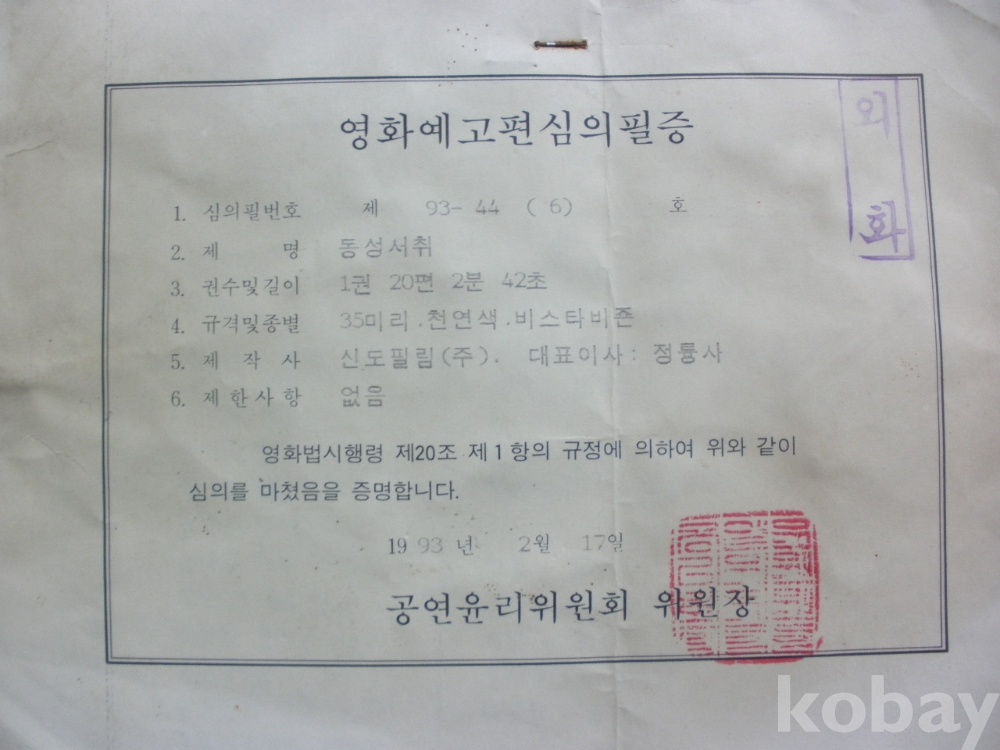 영화예고편심의필증
외화
1. 심의필번호 제 93-44 (6) 호
2. 제 명 동성서취
3. 권수및길이 1권 20편 2분 42초
4. 규격및종별 35미리.천연색.비스타비죤
5. 제작사 신도필림(주). 대표이사: 정륭사
6. 제한사항 없음
영화법시행령 제20조 제1항의 규정에 의하여 위와 같이
심의를 마쳤음을 증명합니다.
1993년 2월 17일
공연윤리위원회 위원장
kobay